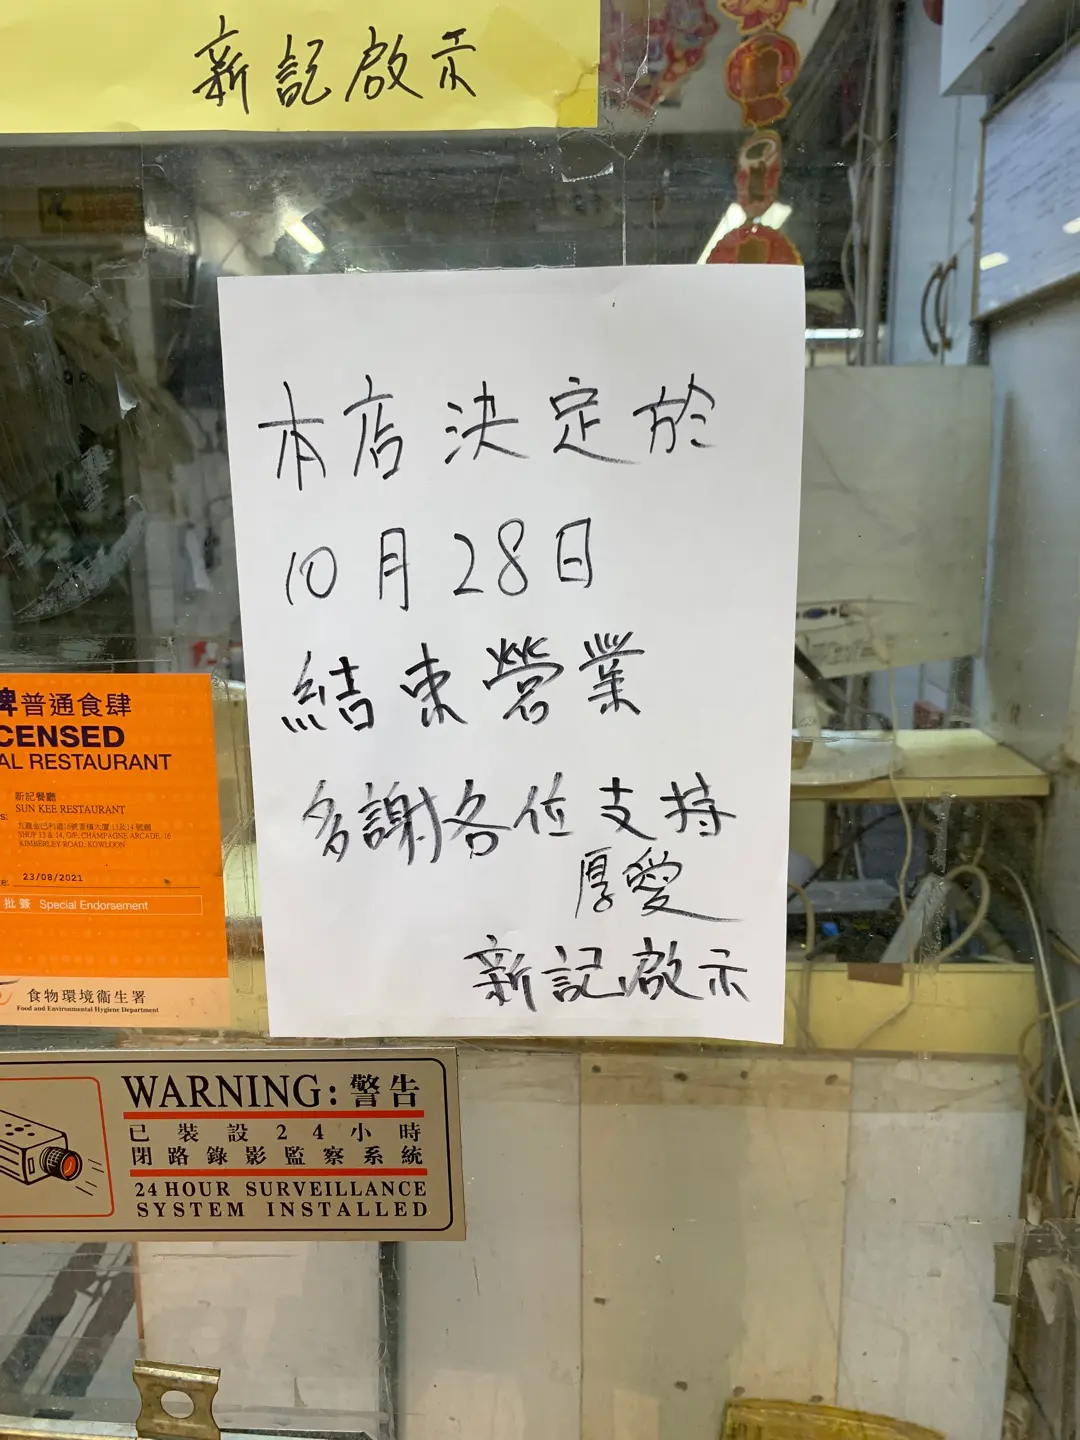 新記啟示
本店決定於
10月28日
結束營業
多謝各位支持
厚愛
新記啟示
牌普通食肆
CENSED
AL RESTAURANT
新記餐廳
SUN KEE RESTAURANT
九龍金巴利道16號香檳大廈13及14號舖
SHOP 13 & 14, G/F, CHAMPAGNE ARCADE, 16
KIMBERLEY ROAD, KOWLOON
23/08/2021
批簽 Special Endorsement
食物環境衞生署
Food and Environmental Hygiene Department
WARNING:警告
已裝設24小時
閉路錄影監察系統
24 HOUR SURVEILLANCE
SYSTEM INSTALLED